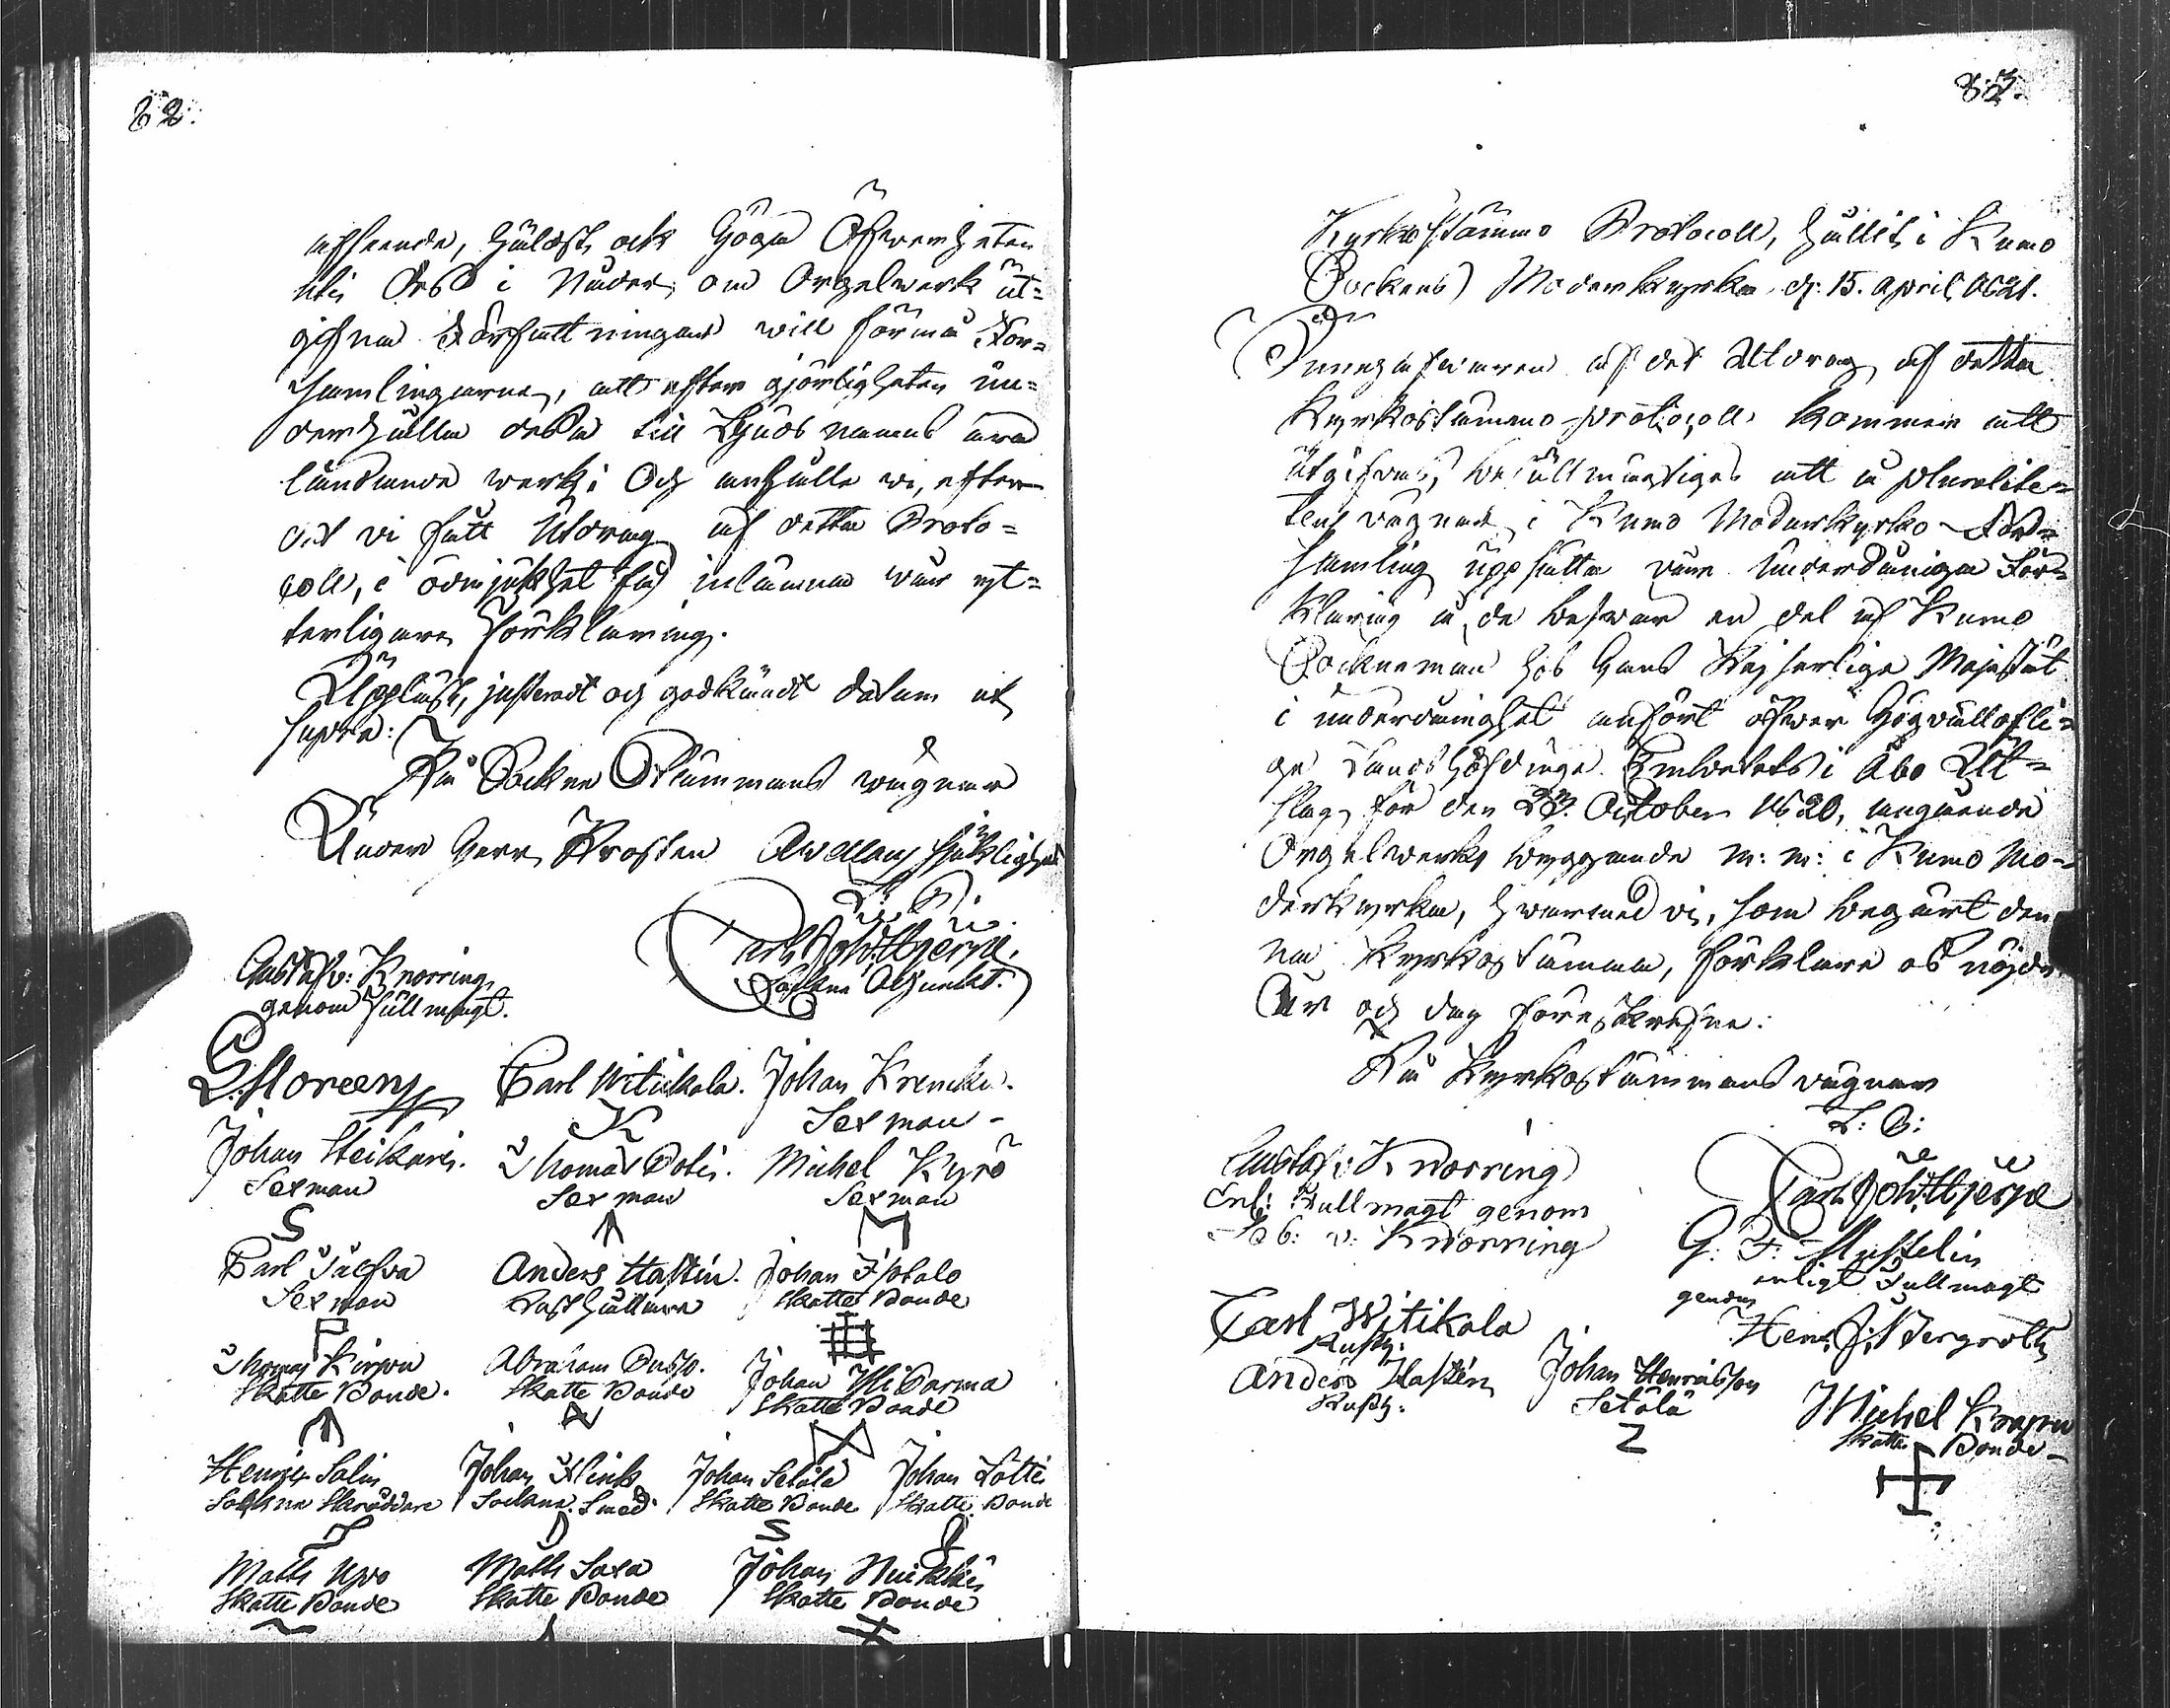 82.
afseende, hälst ock Höga Öfwerheten
uti dess i Nåder om Orgelwerk ut=
gifna Författningar will förmå För=
samlingarne, att efter giörligheten un=
derhålla dessa till Guds namns ära
ländande werk; Och anhålle wi, efter
det vi fått Utdrag af detta Proto=
coll, i ödmjukhet få inlämna wår yt=
terligare förklaring.
Uppläst, justeradt och godkändt datum ut
supra:
På Sockne Stämmans wägnar
Under Herr Prosten Avellans sjuklighet
Gustaf v: Knorring
genom fullmagt.
Sockne Adjunct.
Carl Witikala.
Johan Krencku.
Sexman
Johan Heikari.
Sexman
Thomas Potis.
Sexman
Michel Kyrö
Sexman
Carl Jälfva
Sexman
Anders Hastin.
Rusthållare
Johan Isotalo
Skatte Bonde
Thomas Kirppu
Skatte Bonde.
Abraham
Skatte Bonde
Johan
Skatte Bonde
Henric Salin
Sockne Skräddare
Johan Flink
Sockne Smed.
Johan Setälä
Skatte Bonde
Johan Lotti
Skatte Bonde
Matts Upo
Skatte Bonde
Matts Saxa
Skatte Bonde
Johan
Skatte Bonde
83.
Kyrkostämmo Protocoll, hållit i Kumo
Sockens Moderkyrka d. 15. April 1821.
Innehafwaren af det Utdrag af detta
Kyrkostämmo-protocoll kommer att
utgifwas, befullmägtigas att å pluralite=
tens vägnar i Kumo Moderkyrko För=
samling uppsätta vår Underdåniga För=
klaring å de beswär en del af Kumo
Socknemän hos Hans Kejserliga Majestät
i underdånighet anfört öfwer Högvällofli=
ga Landshöfdinge Embetets i Åbo Ut=
slag för den 23. October 1820, angående
Orgelwerks byggande m: m: i Kumo Mo=
derkyrka, hwarmed vi, som begärt den=
na Kyrkostämma, förklare oss nöjde.
År och dag föreskrefne.
På Kyrkostämmans vägnar
L: B:
Gustaf v: Knorring
Enl: Fullmagt genom
v: Knorring
G: F: Mustelin
enligt Fullmagt
genom
Henr. J: Bergroth
Carl Witikala
Rusth:
Anders Hastin
Rusth:
Johan Henricsson
Setälä
Michel
Skatte Bonde